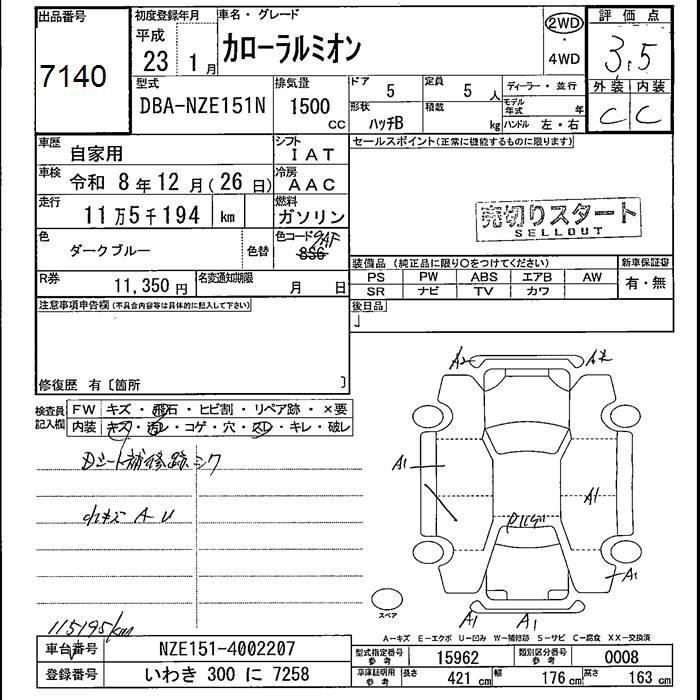 出品番号
7140
初度登録年月
平成
23 1月
車名・グレード
カローラルミオン
2WD
・
4WD
評価点
3.5
外装 内装
C C
型式
DBA-NZE151N
排気量
1500
CC
ドア
5
定員
5 人
ディーラー・並行
形状
ハッチB
積載
kg
モデル年式 年
ハンドル 左・右
車歴
自家用
シフト
IAT
車検
令和 8年12月(26日)
冷房
AAC
走行
11万5千194 km
燃料
ガソリン
色
ダークブルー
色替
色コード
R券
11,350円
名変通知期限
月 日
セールスポイント(正常に機能するものに限ります)
売切りスタート
SELLOUT
装備品 (純正品に限り○をつけてください)
新車保証書
PS PW ABS エアB AW
SR ナビ TV カワ
有・無
後日品
注意事項申告欄(不具合内容等は具体的に記入して下さい)
修復歴 有〔箇所 〕
検査員記入欄
FW キズ・飛石・ヒビ割・リペア跡・×要
内装 キズ・汚レ・コゲ・穴・スレ・キレ・破レ
Dシート補修跡シワ
小キズ A U
115195km
A2 A2
A1
A1
A1
A1 A1
スペア
A-キズ E-エクボ U-凹み W-補修跡 S-サビ C-腐食 XX-交換済
車台番号
NZE151-4002207
登録番号
いわき 300 に 7258
型式指定番号 参考
15962
類別区分番号 参考
0008
車庫証明用 参考
長さ 421 cm 幅 176 cm 高さ 163 cm